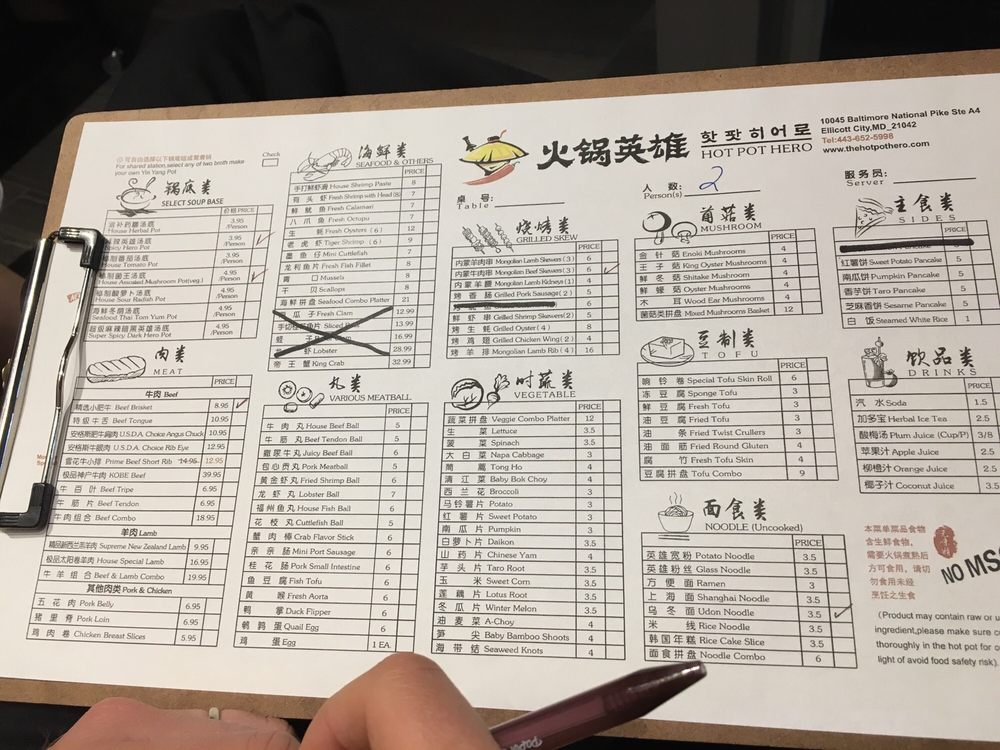 10045 Baltimore National Pike Ste A4
Ellicott City,MD_21042
Tel:443-652-5998
www.thehotpothero.com
火锅英雄 핫팟히어로
HOT POT HERO
桌 号:
Table
人 数: 2
Person(s)
服务员:
Server
For shared station,select any of two broth make
your own Yin Yang Pot
Check
锅底类
SELECT SOUP BASE
价格 PRICE
House Herbal Pot 3.95 /Person
Spicy Hero Pot 3.95 /Person
House Tomato Pot 3.95 /Person
House Assorted Mushroom Pot(veg.) 4.95 /Person
House Sour Radish Pot 4.95 /Person
Seafood Thai Tom Yum Pot 4.95 /Person
超级麻辣暗黑英雄汤底
Super Spicy Dark Hero Pot 4.95 /Person
肉类
MEAT
PRICE
牛肉 Beef
精选小肥牛 Beef Brisket 8.95
特级牛舌 Beef Tongue 10.95
安格斯肥牛肩肉 U.S.D.A. Choice Angus Chuck 10.95
安格斯牛眼肉 U.S.D.A. Choice Rib Eye 12.95
雪花牛小排 Prime Beef Short Rib 14.95 12.95
极品神户牛肉 KOBE Beef 39.95
牛百叶 Beef Tripe 6.95
牛筋片 Beef Tendon 6.95
牛肉组合 Beef Combo 18.95
羊肉 Lamb
精品新西兰羔羊肉 Supreme New Zealand Lamb 9.95
极品太阳卷羊肉 House Special Lamb 16.95
牛羊组合 Beef & Lamb Combo 19.95
其他肉类 Pork & Chicken
五花肉 Pork Belly 6.95
猪里脊 Pork Loin 6.95
鸡肉卷 Chicken Breast Slices 5.95
海鲜类
SEAFOOD & OTHERS
PRICE
手打鲜虾滑 House Shrimp Paste 8
有头虾 Fresh Shrimp with Head(8) 7
鲜鱿鱼 Fresh Calamari 7
八爪鱼 Fresh Octopu 6
生蚝 Fresh Oysters (6) 12
老虎虾 Tiger Shrimp (6) 9
墨鱼仔 Mini Cuttlefish 7
龙利鱼片 Fresh Fish Fillet 8
青口 Mussels 8
干贝 Scallops 8
海鲜拼盘 Seafood Combo Platter 21
瓜子 Fresh Clam 12.99
13.99
16.99
龙虾 Lobster 28.99
帝王蟹 King Crab 32.99
丸类
VARIOUS MEATBALL
PRICE
牛肉丸 House Beef Ball 5
牛筋丸 Beef Tendon Ball 5
撒尿牛丸 Juicy Beef Ball 6
包心贡丸 Pork Meatball 5
黄金虾丸 Fried Shrimp Ball 6
龙虾丸 Lobster Ball 7
福州鱼丸 House Fish Ball 6
花枝丸 Cuttlefish Ball 5
蟹肉棒 Crab Flavor Stick 6
亲亲肠 Mini Port Sausage 6
桂花肠 Pork Small Intestine 6
鱼豆腐 Fish Tofu 6
黄喉 Fresh Aorta 6
鸭掌 Duck Flipper 6
鹌鹑蛋 Quail Egg 6
鸡蛋 Egg 1 EA.
烧烤类
GRILLED SKEW
PRICE
内蒙羊肉串 Mongolian Lamb Skewers(3) 6
内蒙牛肉串 Mongolian Beef Skewers(3) 6
内蒙羊腰 Mongolian Lamb Kidneys(1) 4
烤香肠 Grilled Pork Sausage(2) 5
鲜虾串 Grilled Shrimp Skewers(2) 5
烤生蚝 Grilled Oyster(4) 8
烤鸡翅 Grilled Chicken Wing(2) 4
烤羊排 Mongolian Lamb Rib(4) 16
时蔬类
VEGETABLE
PRICE
蔬菜拼盘 Veggie Combo Platter 12
生菜 Lettuce 3.5
菠菜 Spinach 3.5
大白菜 Napa Cabbage 3
茼蒿 Tong Ho 4
清江菜 Baby Bok Choy 4
西兰花 Broccoli 3
马铃薯片 Potato 3
红薯片 Sweet Potato 3
南瓜片 Pumpkin 3
白萝卜片 Daikon 3.5
山药片 Chinese Yam 4
芋头片 Taro Root 3.5
玉米 Sweet Corn 3.5
莲藕片 Lotus Root 3.5
冬瓜片 Winter Melon 3.5
油麦菜 A-Choy 4
笋尖 Baby Bamboo Shoots 4
海带结 Seaweed Knots 4
菌菇类
MUSHROOM
PRICE
金针菇 Enoki Mushrooms 4
王子菇 King Oyster Mushrooms 4
鲜冬菇 Shitake Mushrooms 4
鲜蠔菇 Oyster Mushrooms 4
木耳 Wood Ear Mushrooms 4
菌菇拼盘 Mixed Mushrooms Basket 12
豆制类
TOFU
PRICE
响铃卷 Special Tofu Skin Roll 6
冻豆腐 Sponge Tofu 3
鲜豆腐 Fresh Tofu 3
油豆腐 Fried Tofu 3
油条 Fried Twist Crullers 3
油面筋 Fried Round Gluten 4
腐竹 Fresh Tofu Skin 4
豆腐拼盘 Tofu Combo 9
面食类
NOODLE (Uncooked)
PRICE
英雄宽粉 Potato Noodle 3.5
英雄粉丝 Glass Noodle 3.5
方便面 Ramen 3
上海面 Shanghai Noodle 3.5
乌冬面 Udon Noodle 3.5
米线 Rice Noodle 3.5
韩国年糕 Rice Cake Slice 3.5
面食拼盘 Noodle Combo 6
主食类
SIDES
PRICE
红薯饼 Sweet Potato Pancake 5
南瓜饼 Pumpkin Pancake 5
香芋饼 Taro Pancake 5
芝麻香饼 Sesame Pancake 5
白饭 Steamed White Rice 1
饮品类
DRINKS
PRICE
汽水 Soda 1.5
加多宝 Herbal Ice Tea 2.5
酸梅汤 Plum Juice (Cup/P) 3/8
苹果汁 Apple Juice 2.5
柳橙汁 Orange Juice 2.5
椰子汁 Coconut Juice 3.5
本菜单菜品食物
含生鲜食物,
需要火锅煮熟后
方可食用,请切
勿食用未经
烹饪之生食
NO MS
(Product may contain raw or u
ingredient,please make sure c
thoroughly in the hot pot for c
light of avoid food safety risk).